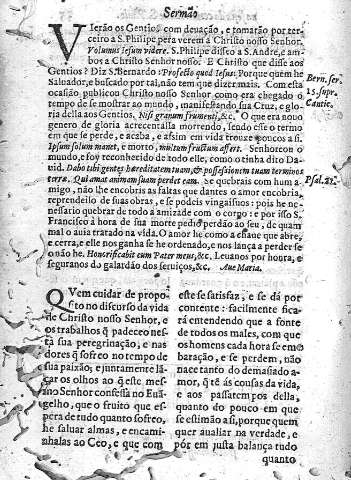 Sermão
VIerão os Gentios com deuação, e tomarão por ter-
ceiro a S. Philipe pera verem a Christo nosso Senhor.
Volumus Iesum videre. S. Philipe disseo a S. Andre, e am-
bos a Christo nosso Senhor. E Christo que disse aos
Gentios? Diz S. Bernardo: Profectio quod Iesus. Porque quẽm he
Saluador, e buscado por tal, não tem que dizer mais. Com esta
ocasião publicou Christo nosso Senhor como era chegado o
tempo de se mostrar ao mundo, manifestando sua Cruz, e glo-
ria della aos Gentios. Nisi granum frumenti, &c. O que era nouo
genero de gloria acrecentalla morrendo, sendo esse o termo
em que se perde, e acaba, e assim em vida trouxe poucos a si.
Ipsum solum manet, e morto, multum fructum affert. Senhoreou o
mundo, e foy reconhecido de todo elle, como o tinha dito Da-
uid. Dabo tibi gentes hæreditatem tuam, & possessionem tuam terminos
terræ. Qui amat animam suam perdet eam. Se quebrais com hum a-
migo, não lhe encobris as faltas que dantes o amor encobria,
reprendeilo de suas obras, e se podeis vingaisuos: pois he ne-
cessario quebrar de todo a amizade com o corpo: e por isso S.
Francisco à hora de sua morte pedio perdão ao seu, de quam
mal o auia tratado na vida. O amor he como a chaue que abre,
e cerra, e elle nos ganha se he ordenado, e nos lança a perder se
o não he. Honorificabit eum Pater meus, &c. Leuanos por houra, e
seguranos da galardão dos seruiços, &c. Aue Maria.
Bern. ser.
15. supr.
Cantic.
Psal. 21.
QVem cuidar de propo-
sito no discurso da vida
de Christo nosso Senhor, e
os trabalhos q̃ padeceo nes-
ta sua peregrinação, e nas
dores q̃ sofreo no tempo de
sua paixão; e juntamente lã-
çar os olhos ao q̃ este mes-
mo Senhor confessa no Euã-
gelho, que o fruito que es-
pera de tudo quanto sofreo,
he saluar almas, e encami-
nhalas ao Ceo, e que com
este se satisfaz, e se dá por
contente: facilmente fica-
rá entendendo que a fonte
de todos os males, com que
os homens cada hora se em-
baração, e se perdem, não
nace tanto do demasiado a-
mor, q̃ tẽ ás cousas da vida,
e aos passatempos della,
quanto do pouco em que
se estimão a si, porque quem
quer aualiar na verdade, e
pór em justa balança tudo
quanto